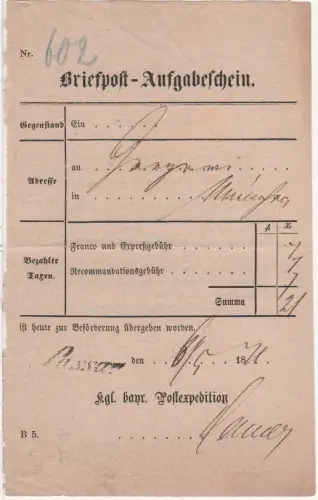 Nr. 602
Briefpost-Aufgabeschein.
Gegenstand Ein . . . . .
Adresse
an
in
fl. kr.
Bezahlte Taxen.
Franco und Expreßgebühr . . . 7
Recommandationsgebühr . . . . 7
7
Summa 21
ist heute zur Beförderung übergeben worden.
Passau den 6/5 1871.
Kgl. bayr. Postexpedition
B 5.